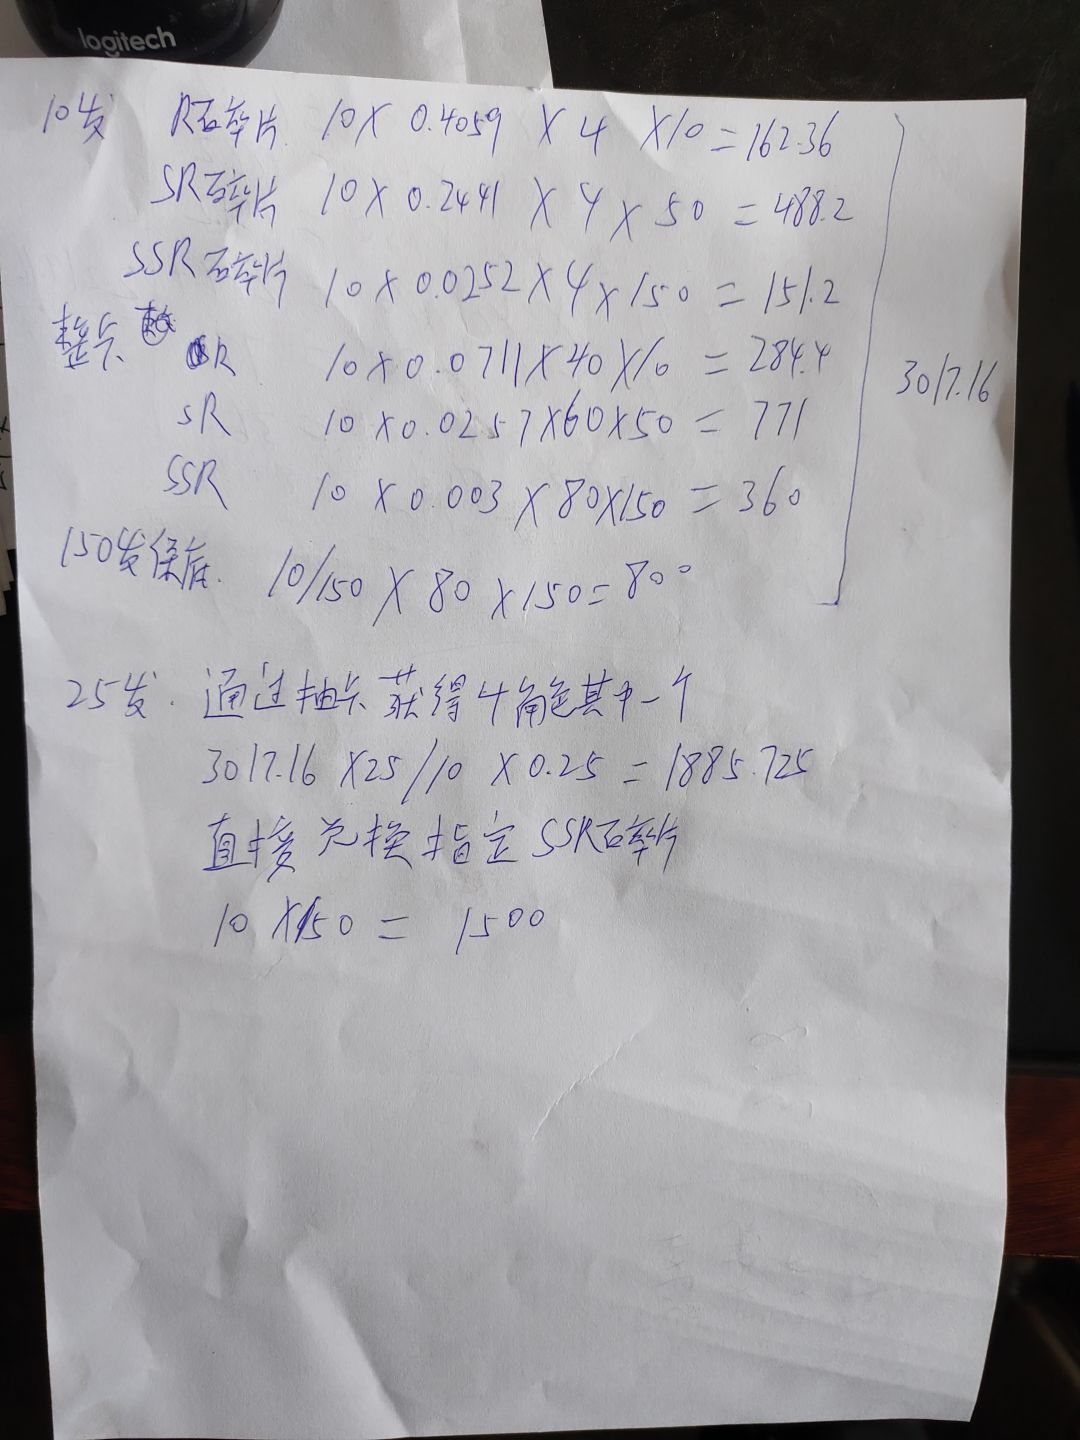 logitech
10发 R碎片 10X 0.4059 X 4 X10=162.36
SR碎片 10X 0.2441 X 4 X 50 = 488.2
SSR碎片 10 X 0.0252 X 4 X 150 = 151.2
整卡 R 10 X 0.0711 X 40 X 10 = 284.4
SR 10 X 0.0257 X 60 X 50 = 771
SSR 10 X 0.003 X 80 X 150 = 360
3017.16
150发保底. 10/150 X 80 X 150 = 800
25发. 通过抽卡获得4角色其中一个
3017.16 X25/10 X 0.25 = 1885.725
直接兑换指定SSR碎片
10 X150 = 1500